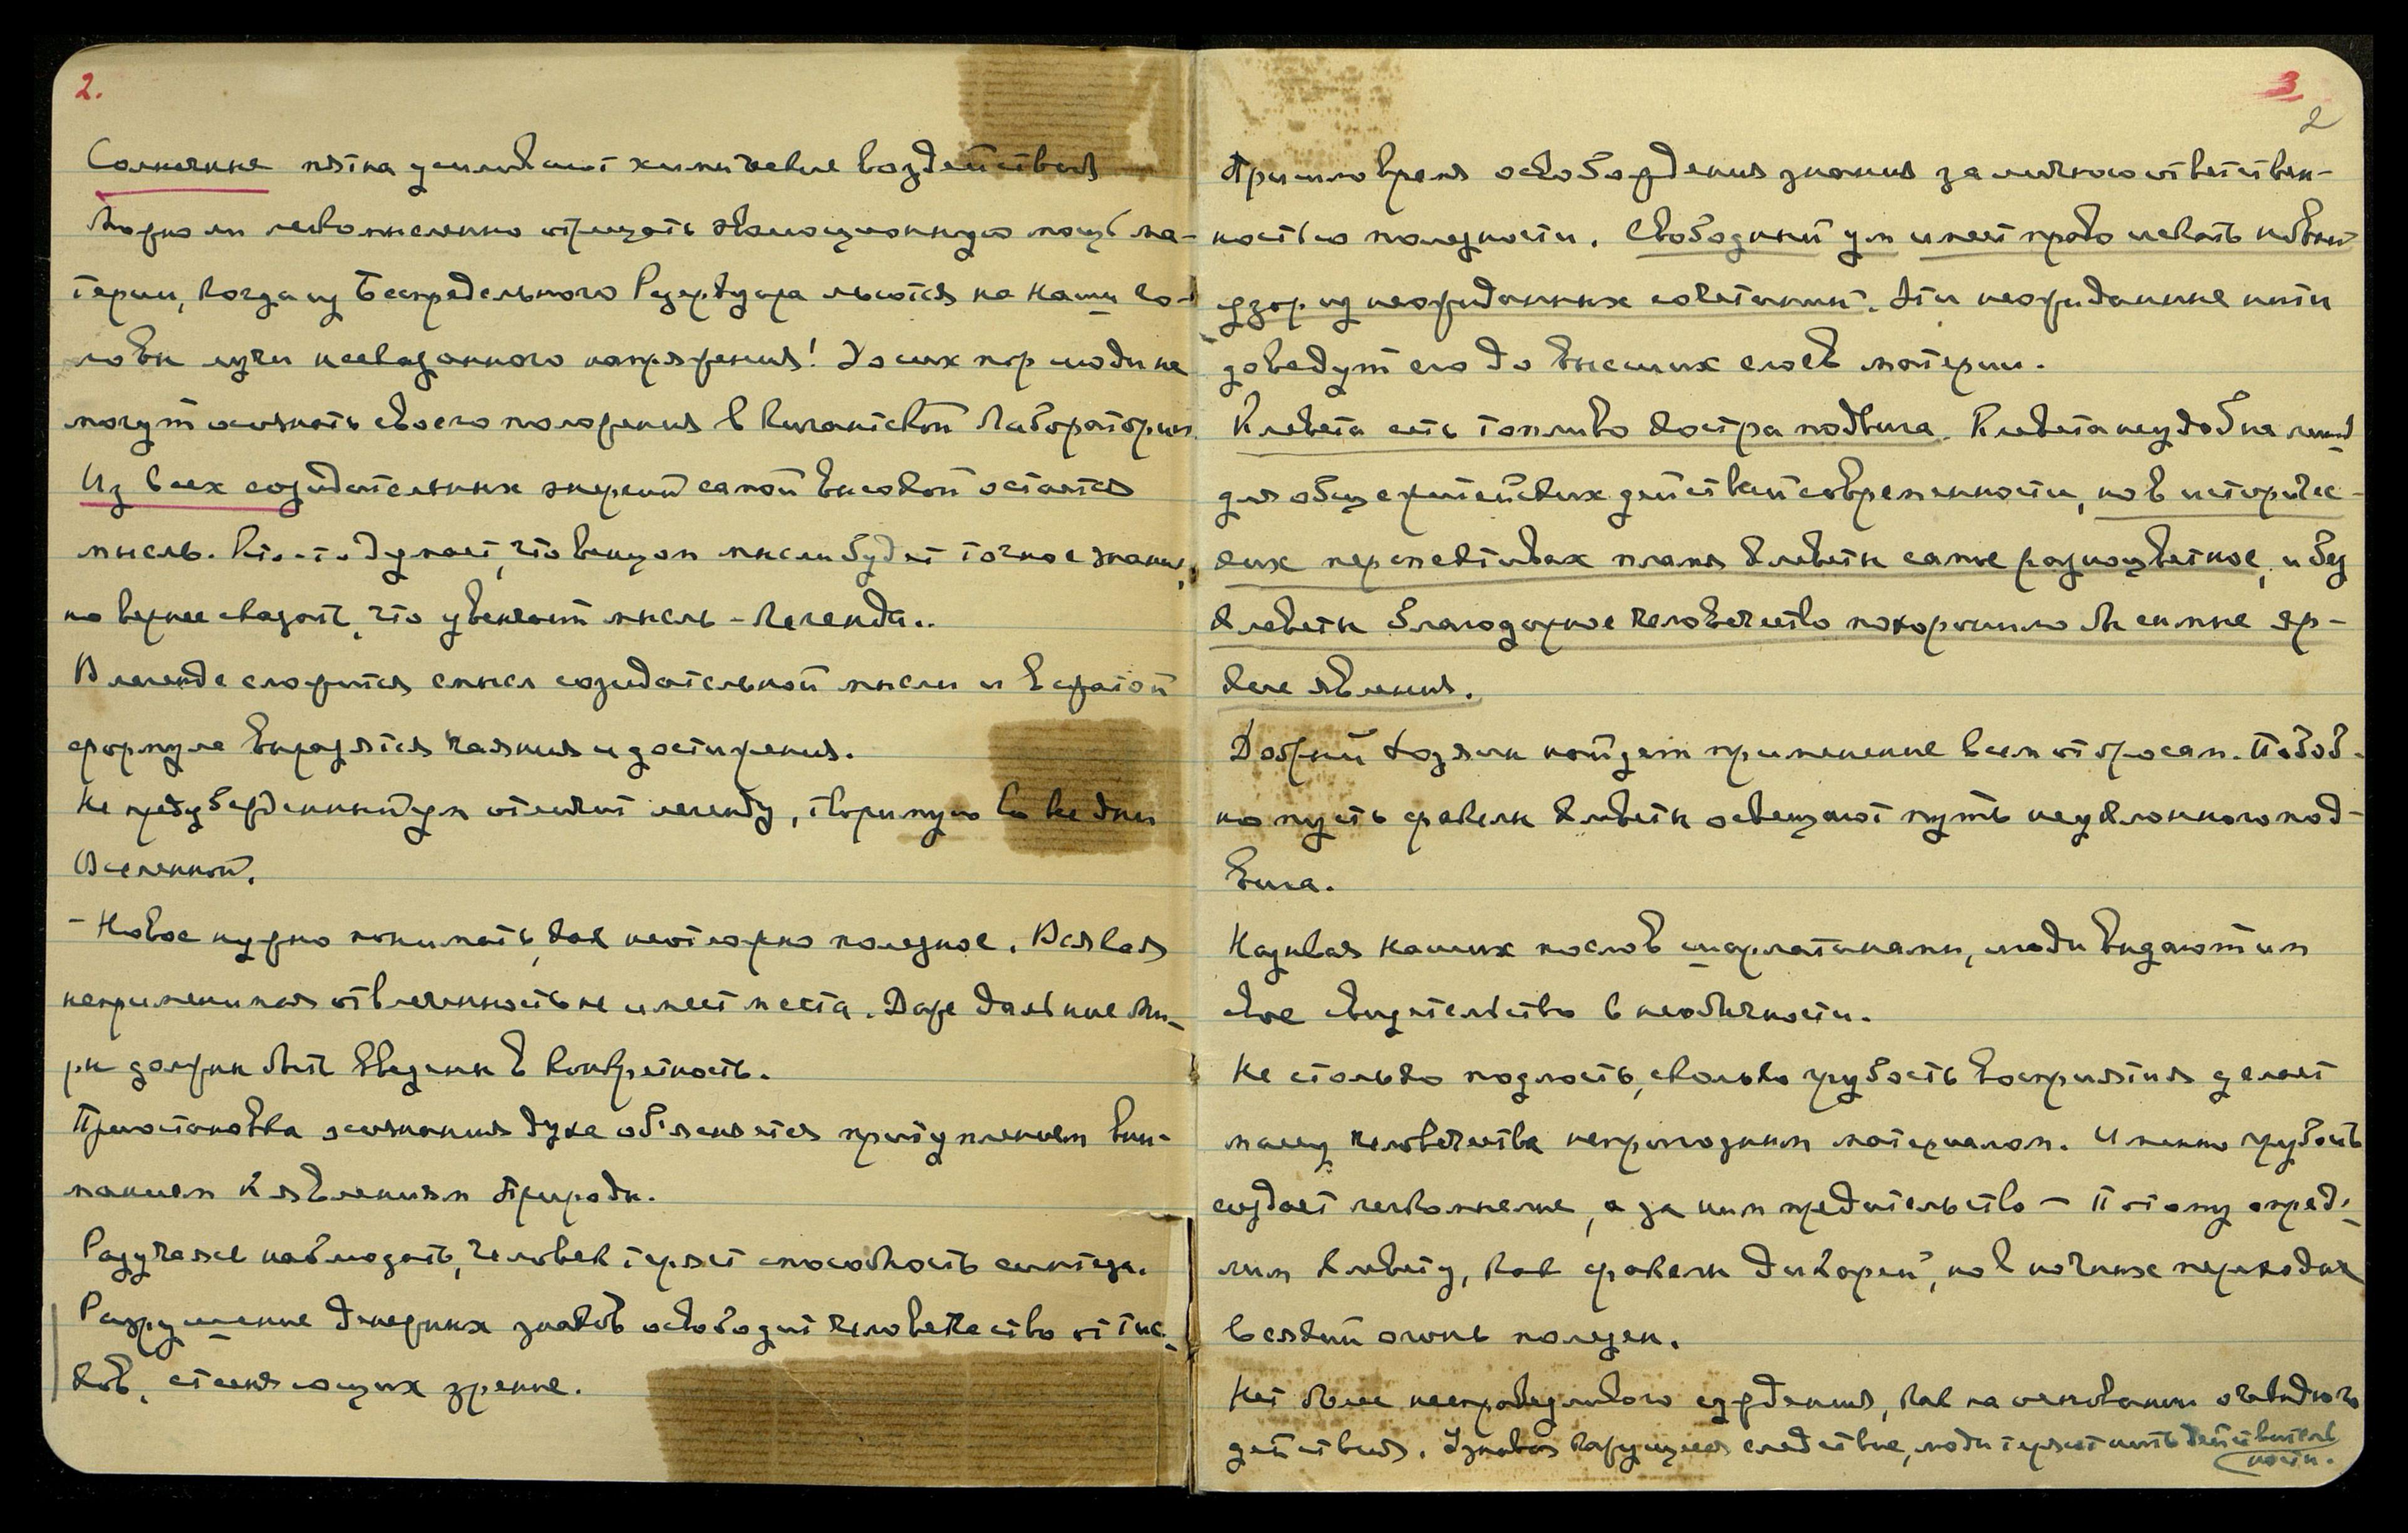 2.
Солнечные пятна усиливают химические воздействия
Можно ли легкомысленно отрицать эволюционную мощь ма-
терии, когда из беспредельного Резервуара льются на наши го-
ловы лучи несказанного напряжения! До сих пор люди не
могут осознать своего положения в Гигантской Лаборатории.
Из всех созидательных энергий самой высокой остается
мысль. Кто-то думает, что венцом мысли будет точное знание,
но вернее сказать, что увенчает мысль – легенда..
В легенде сложится смысл созидательной мысли и в сжатой
формуле выразятся чаяния и достижения.
Не предубежденный ум отличит легенду, творимую во все дни
Вселенной.
– Новое нужно понимать, как неотложно полезное. Всякая
неприменимая отвлеченность не имеет места. Даже дальние Ми-
ры должны быть введены в конкретность.
Приостановка осознания духа об'ясняется притуплением вни-
манием к явлениям Природы.
Разучаясь наблюдать, человек теряет способность синтеза.
Разрушение денежных знаков освободит человечество от тис-
ков, стесняющих зрение.
3
2
Пришло время освобождения знания за личною ответствен-
ностью полезности. Свободный ум имеет право искать новый
узор из неожиданных сочетаний. Эти неожиданные нити
доведут его до высших слоев материи.
Клевета есть топливо костра подвига. Клевета неудобна лишь
для общежитейских действий современности, но в историчес-
ких перспективах пламя клеветы самое разноцветное, и без
клеветы благодарное человечество похоронило бы самые яр-
кие явления.
Добрый хозяин найдет применение всем отбросам. Подоб-
но пусть факелы клеветы освещают путь неуклонного под-
вига.
Называя наших послов шарлатанами, люди выдают им
свое свидетельство в необычности.
Не столько подлость, сколько грубость восприятия делает
массу человечества непригодным материалом. Именно грубость
создает легкомыслие, а за ним предательство – Потому опред.
лим клевету, как факелы дикарей, но в ночных переходах
всякий огонь полезен.
Нет более несправедливого суждения, как на основании очевидного
действия. Узнавая кажущееся следствие, люди теряют нить действитель
ности.